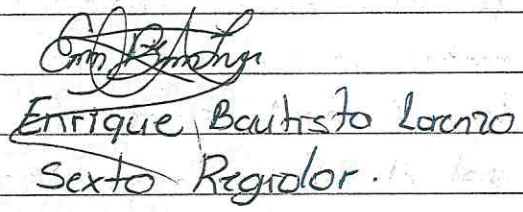 Enrique Bautisto Lorenzo
Sexto Regidor.